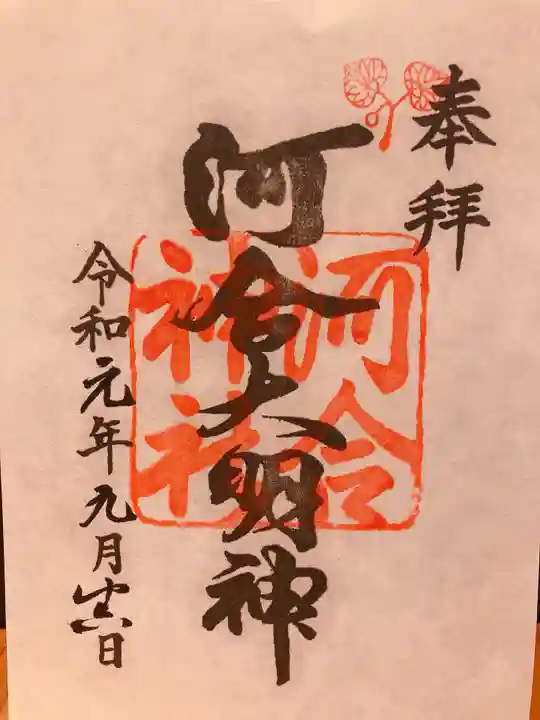 奉拝
河合大明神
河合
神社
令和元年九月廿六日